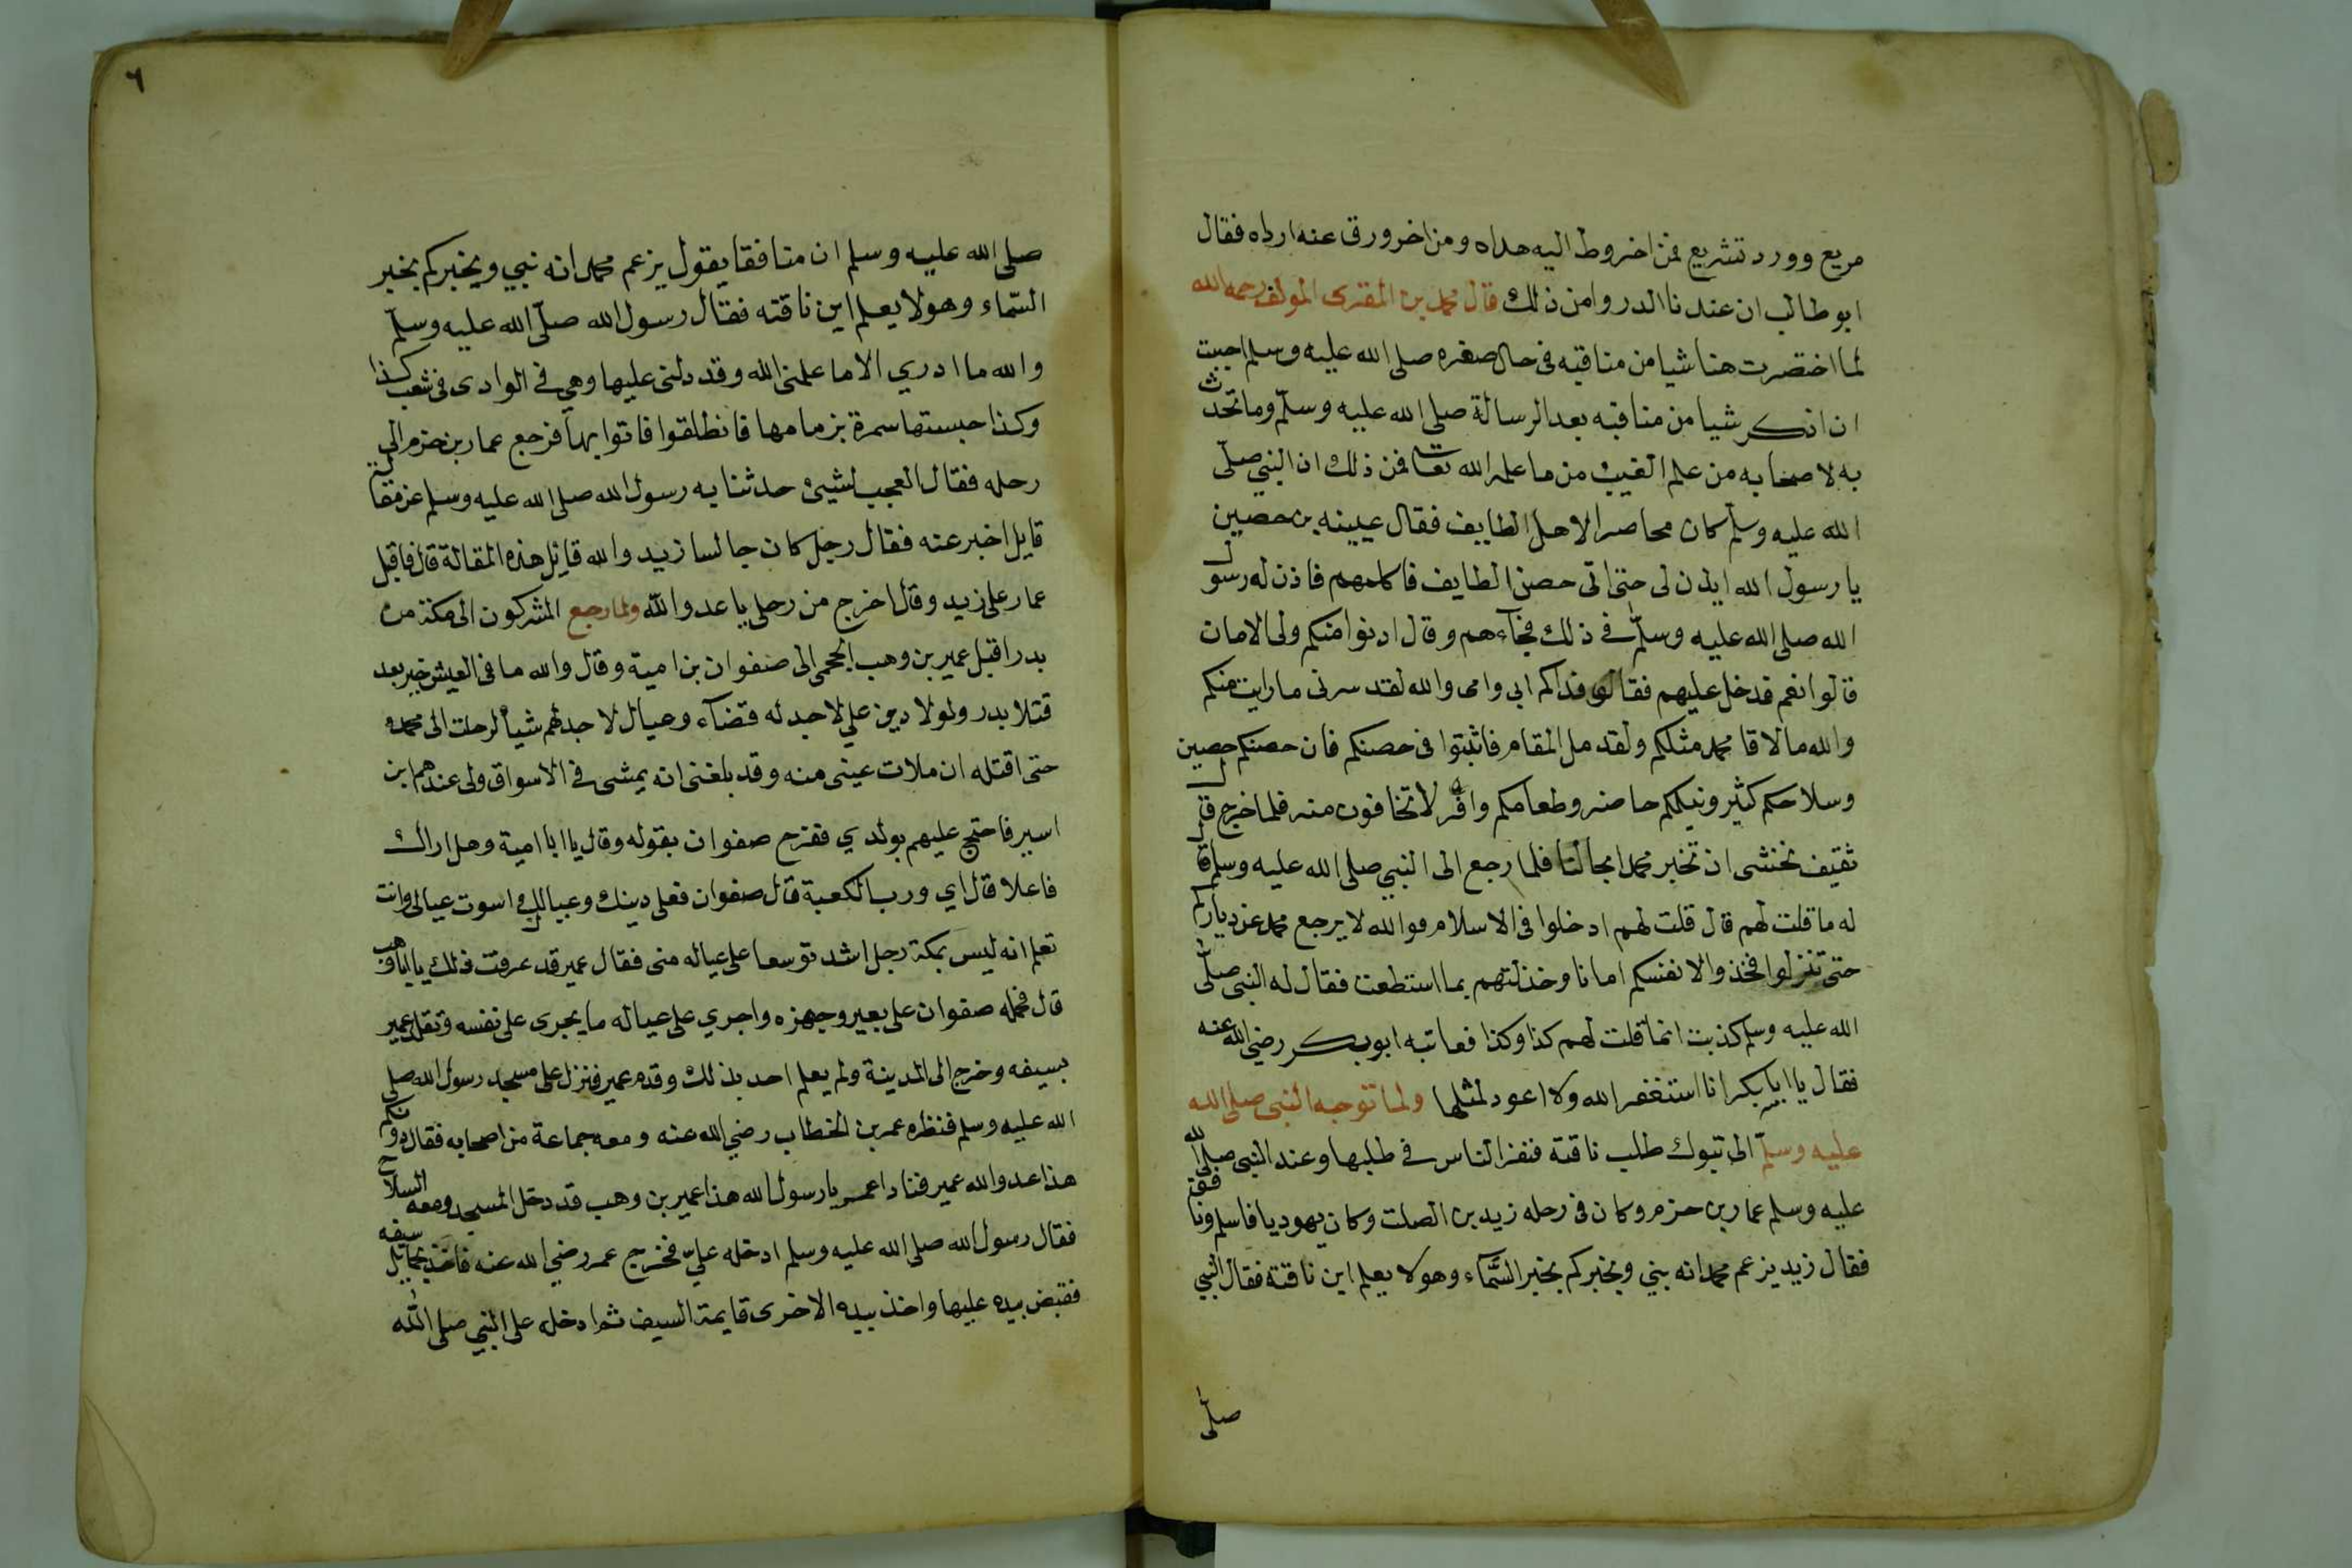 مريع وورد تشريع فمن اخروط اليه هداه ومن اخرورق عنه ارداه فقال
ابو طالب ان عندنا الدروا من ذلك قال محمد بن المقرى المولف رحمه الله
لما اختصرت هنا شيا من مناقبه فى حال صغره صلى الله عليه وسلم احببت
ان اذكر شيا من مناقبه بعد الرسالة صلى الله عليه وسلم وما تحدث
به لاصحابه من علم الغيب من ما علمه الله تعالى فمن ذلك ان النبي صلى
الله عليه وسلم كان محاصرا لاهل الطايف فقال عيينه بن حصين
يا رسول الله ايذن لى حتى اتى حصن الطايف فاكلمهم فاذن له رسول
الله صلى الله عليه وسلم في ذلك فجآءهم وقال ادنوا منكم ولى الامان
قالوا نعم فدخل عليهم فقال فداكم ابى وامى والله لقد سرنى ما رايت منكم
والله ما لاقا محمد مثلكم ولقد مل المقام فاثبتوا فى حصنكم فان حصنكم حصين
وسلاحكم كثير ونبلكم حاضر وطعامكم وافر لا تخافون منه فلما خرج قال
ثقيف نخشى ان تخبر محمدا بحالنا فلما رجع الى النبي صلى الله عليه وسلم قال
له ما قلت لهم قال قلت لهم ادخلوا فى الاسلام فوالله لا يرجع محمد عن دياركم
حتى تنزلوا فخذوا لانفسكم امانا وخذلتهم بما استطعت فقال له النبى صلى
الله عليه وسلم كذبت انما قلت لهم كذا وكذا فعاتبه ابوبكر رضي الله عنه
فقال يا ابابكر انا استغفر الله ولا اعود لمثلها ولما توجه النبى صلى الله
عليه وسلم الى تبوك طلب ناقتة فنفر الناس في طلبها وعند النبى صلى الله
عليه وسلم عمار بن حزم وكان فى رحله زيد بن الصلت وكان يهوديا فاسلم ونافق
فقال زيد يزعم محمد انه نبي ويخبركم بخبر السمآء وهو لا يعلم اين ناقتة فقال النبي
صلى
٦
صلى الله عليه وسلم ان منافقا يقول يزعم محمد انه نبي ويخبركم بخبر
السماء وهو لا يعلم اين ناقته فقال رسول الله صلى الله عليه وسلم
والله ما ادري الا ما علمنى الله وقد دلنى عليها وهي في الوادى فى شعب كذا
وكذا حبستها سمرة بزمامها فانطلقوا فاتوا بها فرجع عمار بن حزم الى
رحله فقال العجب لشيئ حدثنا به رسول الله صلى الله عليه وسلم عن مقالة
قايل اخبر عنه فقال رجل كان جالسا زيد والله قايل هذه المقالة قال فاقبل
عمار على زيد وقال اخرج من رحلى يا عدو الله ولما رجع المشركون الى مكة من
بدر اقبل عمير بن وهب الجحمى الى صفوان بن امية وقال والله ما فى العيش خير بعد
قتلا بدر ولولا دين علي لا اجد له قضآء وعيال لا اجد لهم شيأ لرحلت الى محمد
حتى اقتله ان ملات عينى منه وقد بلغنى انه يمشى في الاسواق ولى عندهم ابن
اسير فاحتج عليهم بولدي ففرح صفوان بقوله وقال يا ابا امية وهل اراك
فاعلا قال اي ورب الكعبة قال صفوان فعلى دينك وعيالك اسوت عيالى وانت
تعلم انه ليس بمكة رجل اشد توسعا على عياله منى فقال عمير قد عرفت ذلك يا ابا وهب
قال فحمله صفوان على بعير وجهزه واجري على عياله ما يجرى على نفسه وتقلد عمير
بسيفه وخرج الى المدينة ولم يعلم احد بذلك وقدم عمير فنزل على مسجد رسول الله صلى
الله عليه وسلم فنظره عمر بن الخطاب رضي الله عنه ومعه جماعة من اصحابه فقال دونكم
هذا عدو الله عمير فنادا عمر يا رسول الله هذا عمير بن وهب قد دخل المسجد ومعه السلاح
فقال رسول الله صلى الله عليه وسلم ادخله علي فخرج عمر رضي الله عنه فاخذ بحمايل سيفه
فقبض بيده عليها واخذ بيده الاخرى قايمة السيف ثم ادخله على النبي صلى الله